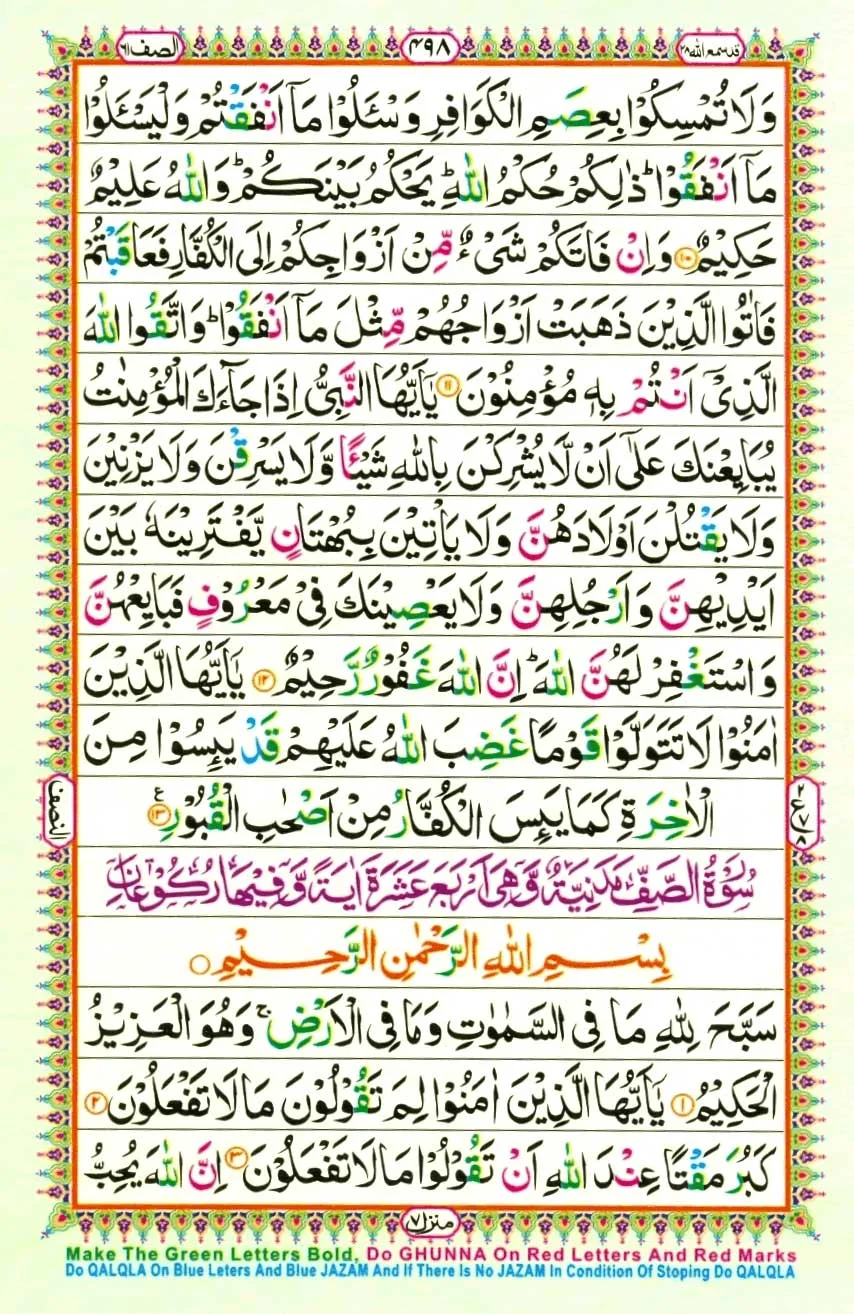 قد سمع الله ٢٨
٤٩٨
الصف ٦١
وَلَا تُمْسِكُوْا بِعِصَمِ الْكَوَافِرِ وَسْـَٔلُوْا مَآ اَنْفَقْتُمْ وَلْيَسْـَٔلُوْا
مَآ اَنْفَقُوْا ؕ ذٰلِكُمْ حُكْمُ اللّٰهِ ؕ يَحْكُمُ بَيْنَكُمْ ؕ وَاللّٰهُ عَلِيْمٌ
حَكِيْمٌ ۝۱۰ وَاِنْ فَاتَكُمْ شَىْءٌ مِّنْ اَزْوَاجِكُمْ اِلَى الْكُفَّارِ فَعَاقَبْتُمْ
فَاٰتُوا الَّذِيْنَ ذَهَبَتْ اَزْوَاجُهُمْ مِّثْلَ مَآ اَنْفَقُوْا ؕ وَاتَّقُوا اللّٰهَ
الَّذِىْٓ اَنْتُمْ بِهٖ مُؤْمِنُوْنَ ۝۱۱ يٰٓاَيُّهَا النَّبِىُّ اِذَا جَآءَكَ الْمُؤْمِنٰتُ
يُبَايِعْنَكَ عَلٰٓى اَنْ لَّا يُشْرِكْنَ بِاللّٰهِ شَيْـًٔا وَّلَا يَسْرِقْنَ وَلَا يَزْنِيْنَ
وَلَا يَقْتُلْنَ اَوْلَادَهُنَّ وَلَا يَاْتِيْنَ بِبُهْتَانٍ يَّفْتَرِيْنَهٗ بَيْنَ
اَيْدِيْهِنَّ وَاَرْجُلِهِنَّ وَلَا يَعْصِيْنَكَ فِىْ مَعْرُوْفٍ فَبَايِعْهُنَّ
وَاسْتَغْفِرْ لَهُنَّ اللّٰهَ ؕ اِنَّ اللّٰهَ غَفُوْرٌ رَّحِيْمٌ ۝۱۲ يٰٓاَيُّهَا الَّذِيْنَ
اٰمَنُوْا لَا تَتَوَلَّوْا قَوْمًا غَضِبَ اللّٰهُ عَلَيْهِمْ قَدْ يَىِٕسُوْا مِنَ
الْاٰخِرَةِ كَمَا يَىِٕسَ الْكُفَّارُ مِنْ اَصْحٰبِ الْقُبُوْرِ ۝۱۳ ع
النصف
سُوْرَةُ الصَّفِّ مَدَنِيَّةٌ وَّهِىَ اَرْبَعَ عَشَرَةَ اٰيَةً وَّفِيْهَا رُكُوْعَانِ
بِسْمِ اللّٰهِ الرَّحْمٰنِ الرَّحِيْمِ ۝
سَبَّحَ لِلّٰهِ مَا فِى السَّمٰوٰتِ وَمَا فِى الْاَرْضِ ۚ وَهُوَ الْعَزِيْزُ
الْحَكِيْمُ ۝۱ يٰٓاَيُّهَا الَّذِيْنَ اٰمَنُوْا لِمَ تَقُوْلُوْنَ مَا لَا تَفْعَلُوْنَ ۝۲
كَبُرَ مَقْتًا عِنْدَ اللّٰهِ اَنْ تَقُوْلُوْا مَا لَا تَفْعَلُوْنَ ۝۳ اِنَّ اللّٰهَ يُحِبُّ
منزل ٧
Make The Green Letters Bold, Do GHUNNA On Red Letters And Red Marks
Do QALQLA On Blue Leters And Blue JAZAM And If There Is No JAZAM In Condition Of Stoping Do QALQLA